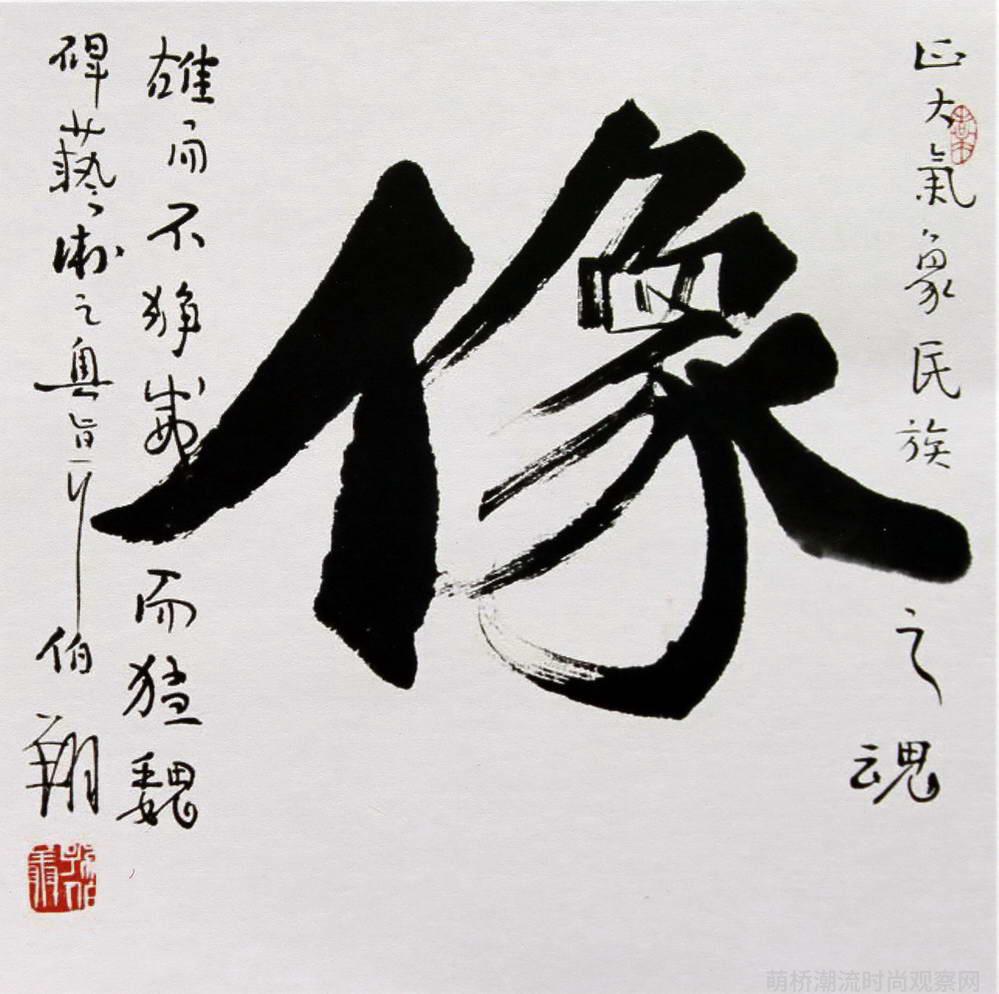 正大氣象民族之魂
像
雄而不狰威而猛魏
碑藝術之奥旨
伯翔
萌桥潮流时尚观察网